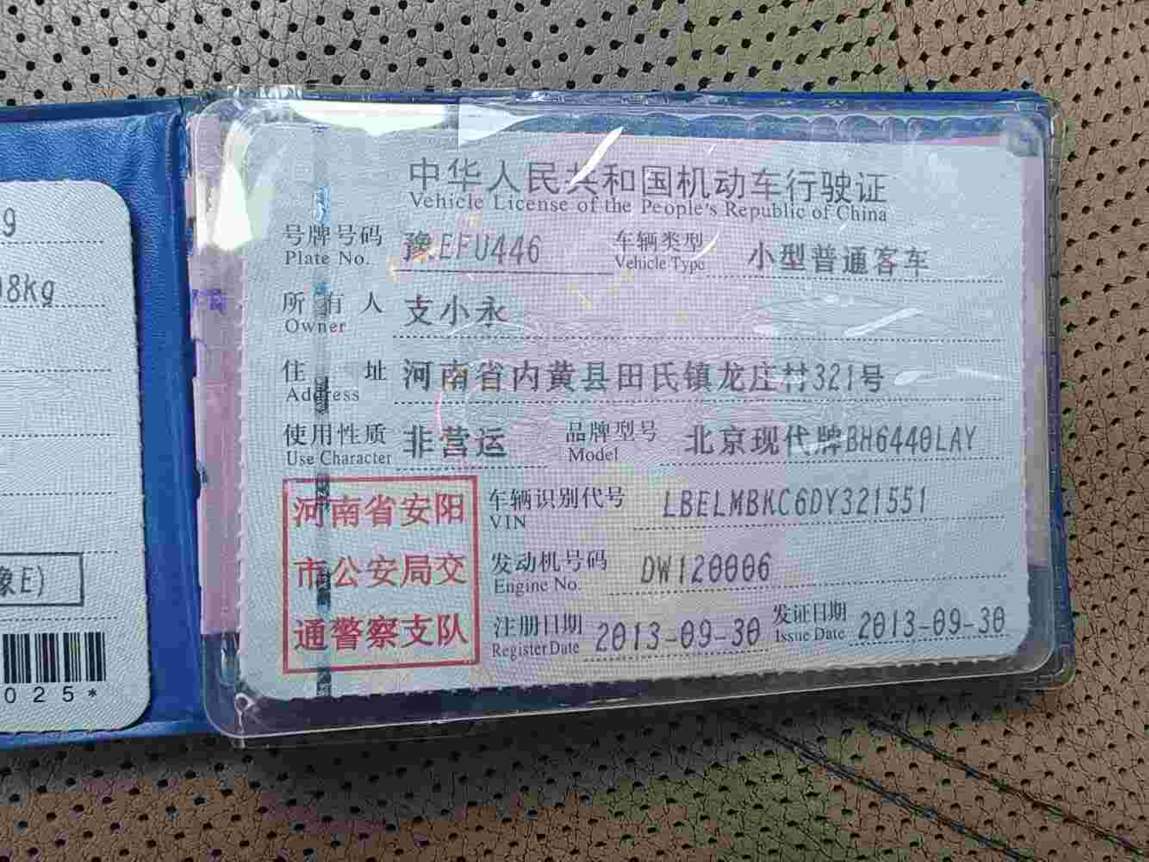 9
08kg
豫E)
025*
中华人民共和国机动车行驶证
Vehicle License of the People's Republic of China
号牌号码 豫EFU446 车辆类型 小型普通客车
Plate No. Vehicle Type
所有人 支小永
Owner
住址 河南省内黄县田氏镇龙庄村321号
Address
使用性质 非营运 品牌型号 北京现代牌BH6440LAY
Use Character Model
河南省安阳
市公安局交
通警察支队
车辆识别代号 LBELMBKC6DY321551
VIN
发动机号码 DW120006
Engine No.
注册日期 2013-09-30 发证日期 2013-09-30
Register Date Issue Date